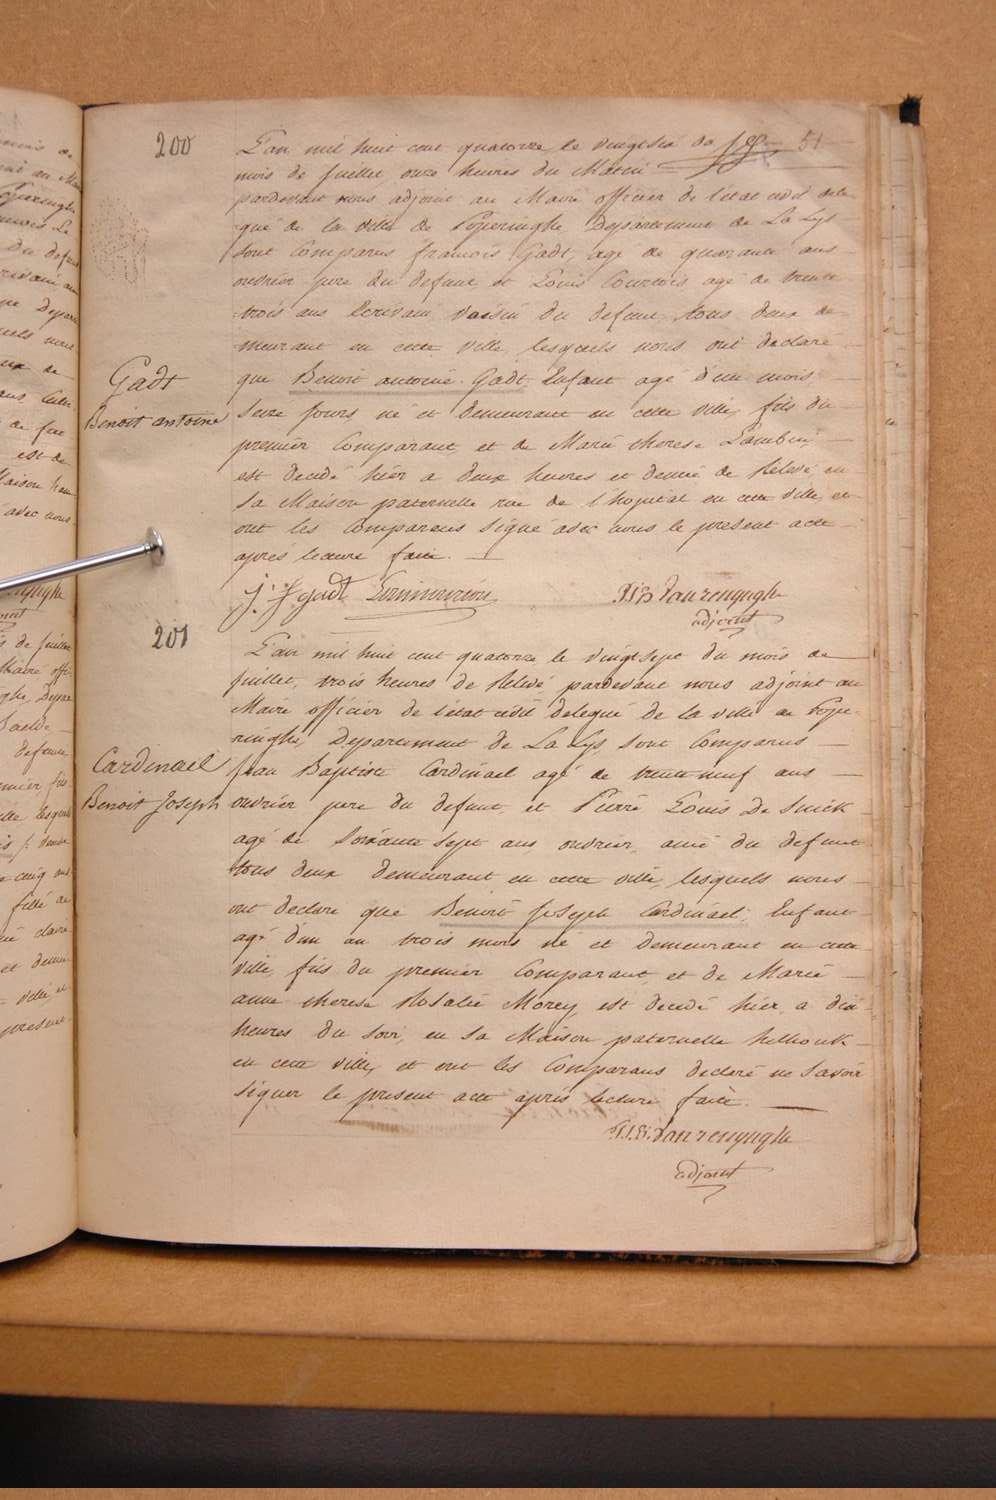 200
L'an mil huit cent quatorze le vingt six du 51
mois de Juillet, onze heures du Matin
pardevant nous adjoint au Maire officier de l'état civil dele-
gué de la ville de Poperinghe Departement de La Lys
sont Comparus francois Gadt, agé de quarante ans
ouvrier pere du defunt et Louis Courtois agé de trente
trois ans Ecrivain voisin du defunt, tous deux de-
meurant en cette ville, lesquels nous ont declaré
Gadt
Benoit antoine
que Benoit antoine Gadt Enfant agé d'un mois
seize jours, né et demeurant en cette ville, fils du
premier Comparant et de Marie therese
est decedé hier a deux heures et demie de Relevé en
sa Maison paternelle rue de l'hopital en cette ville, et
ont les Comparans signé avec nous le present acte
après lecture faite.
j: f gadt P.J.B. Vanrenynghe
adjoint
201
L'an mil huit cent quatorze le vingt sept du mois de
Juillet, trois heures de Relevé, pardevant nous adjoint au
Maire officier de l'état civil delegué de la ville de Pope-
ringhe, Departement de La Lys, sont Comparus
Cardinael
Benoit Joseph
Jean Baptiste Cardinael agé de trente neuf ans
ouvrier pere du defunt, et Pierre Louis De
agé de soixante sept ans, ouvrier, ami du defunt
tous deux demeurant en cette ville, lesquels nous
ont declaré que Benoit Joseph Cardinael, Enfant
agé d'un an trois mois né et demeurant en cette
ville, fils du premier Comparant, et de Marie
anne therese Rosalie Morey, est decedé hier, a dix
heures du soir, en sa Maison paternelle
en cette ville, et ont les Comparans declaré ne savoir
signer le present acte après lecture faite.
P.J.B. Vanrenynghe
adjoint